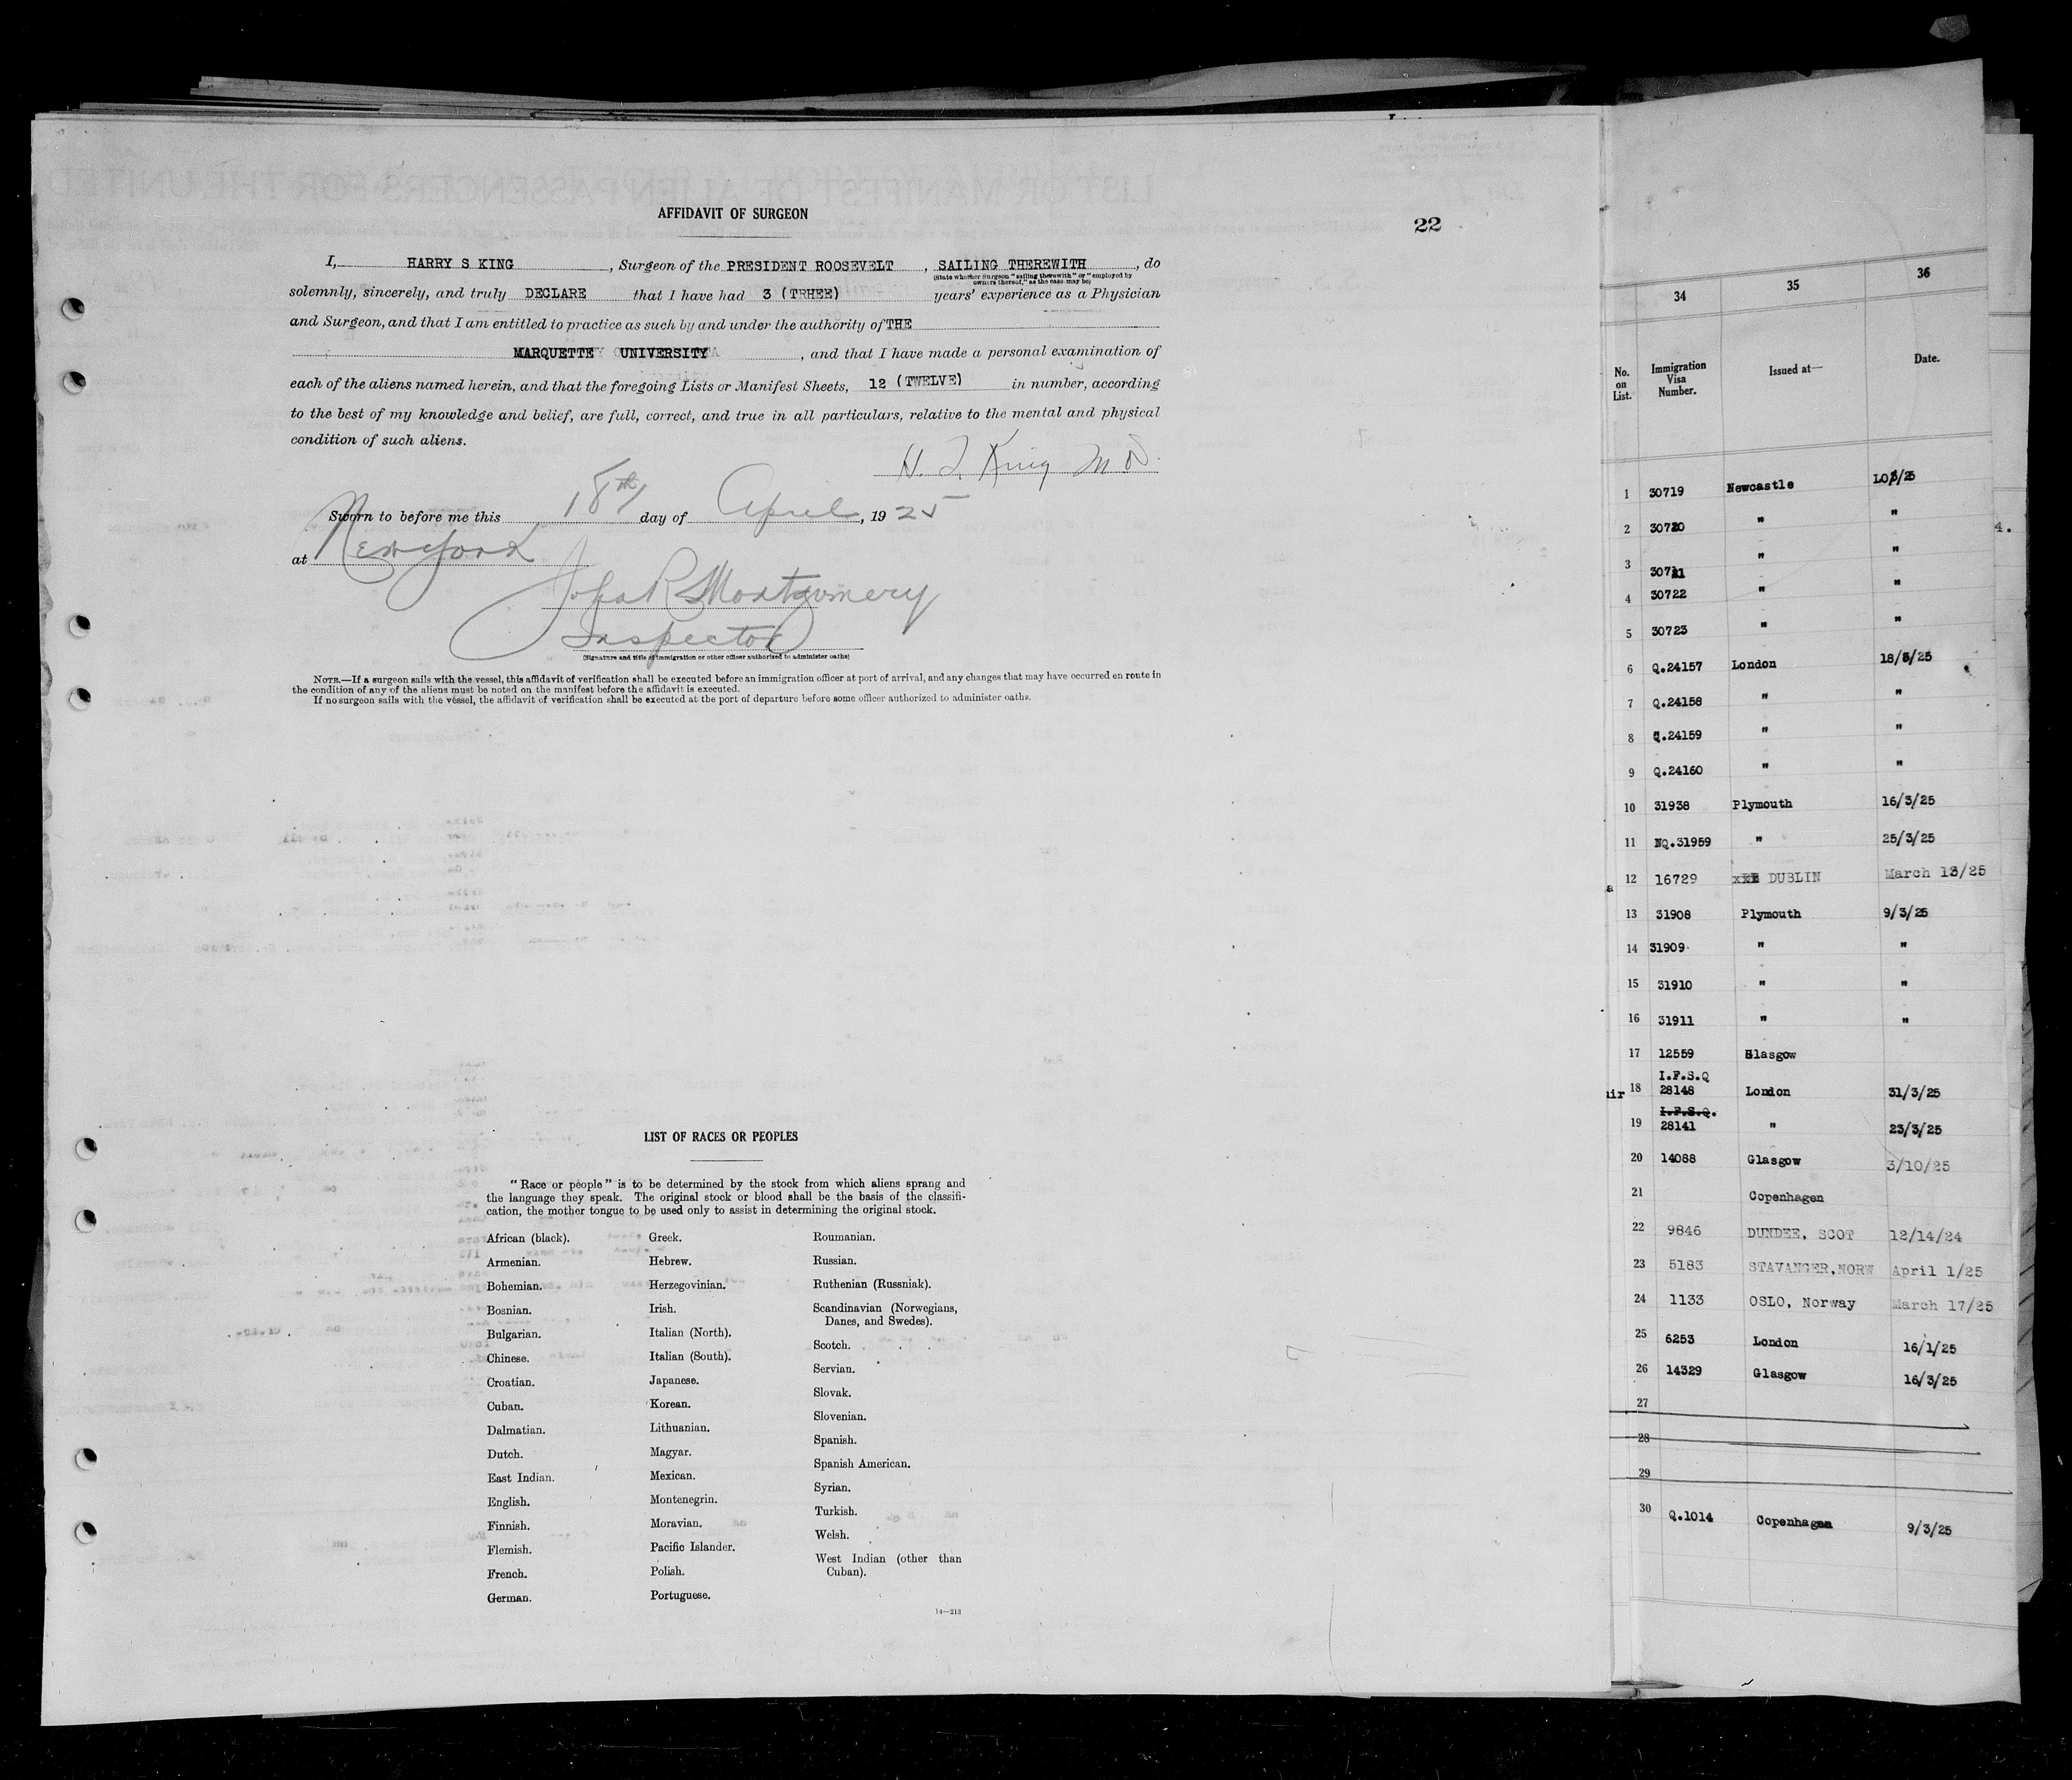 AFFIDAVIT OF SURGEON
22
I, HARRY S KING, Surgeon of the PRESIDENT ROOSEVELT, SAILING THEREWITH, do
(State whether Surgeon "sailing therewith" or "employed by
owners thereof," as the case may be)
solemnly, sincerely, and truly DECLARE that I have had 3 (TRHEE) years' experience as a Physician
and Surgeon, and that I am entitled to practice as such by and under the authority of THE
MARQUETTE UNIVERSITY, and that I have made a personal examination of
each of the aliens named herein, and that the foregoing Lists or Manifest Sheets, 12 (TWELVE) in number, according
to the best of my knowledge and belief, are full, correct, and true in all particulars, relative to the mental and physical
condition of such aliens.
H. S. King M D.
Sworn to before me this 18th day of April, 1925
at New York
John R Montgomery
Inspector
(Signature and title of immigration or other officer authorized to administer oaths)
NOTE.—If a surgeon sails with the vessel, this affidavit of verification shall be executed before an immigration officer at port of arrival, and any changes that may have occurred en route in
the condition of any of the aliens must be noted on the manifest before the affidavit is executed.
If no surgeon sails with the vessel, the affidavit of verification shall be executed at the port of departure before some officer authorized to administer oaths.
LIST OF RACES OR PEOPLES
"Race or people" is to be determined by the stock from which aliens sprang and
the language they speak. The original stock or blood shall be the basis of the classifi-
cation, the mother tongue to be used only to assist in determining the original stock.
African (black).
Armenian.
Bohemian.
Bosnian.
Bulgarian.
Chinese.
Croatian.
Cuban.
Dalmatian.
Dutch.
East Indian.
English.
Finnish.
Flemish.
French.
German.
Greek.
Hebrew.
Herzegovinian.
Irish.
Italian (North).
Italian (South).
Japanese.
Korean.
Lithuanian.
Magyar.
Mexican.
Montenegrin.
Moravian.
Pacific Islander.
Polish.
Portuguese.
Roumanian.
Russian.
Ruthenian (Russniak).
Scandinavian (Norwegians,
Danes, and Swedes).
Scotch.
Servian.
Slovak.
Slovenian.
Spanish.
Spanish American.
Syrian.
Turkish.
Welsh.
West Indian (other than
Cuban).
14—213
34 35 36
No. on List. Immigration Visa Number. Issued at— Date.
1 30719 Newcastle
2 30720 " "
3 " "
4 30722 " "
5 30723 " "
6 Q.24157 London 18/3/25
7 Q.24158 " "
8 Q.24159 " "
9 Q.24160 " "
10 31938 Plymouth 16/3/25
11 NQ.31959 " 25/3/25
12 16729 DUBLIN March 13/25
13 31908 Plymouth 9/3/25
14 31909 " "
15 31910 " "
16 31911 " "
17 12559 Glasgow
I.F.S.Q
18 28148 London 31/3/25
I.F.S.Q.
19 28141 " 23/3/25
20 14088 Glasgow 3/10/25
21 Copenhagen
22 9846 DUNDEE, SCOT 12/14/24
23 5183 STAVANGER,NORW April 1/25
24 1133 OSLO, Norway March 17/25
25 6253 London 16/1/25
26 14329 Glasgow 16/3/25
27
28
29
30 Q.1014 Copenhagen 9/3/25